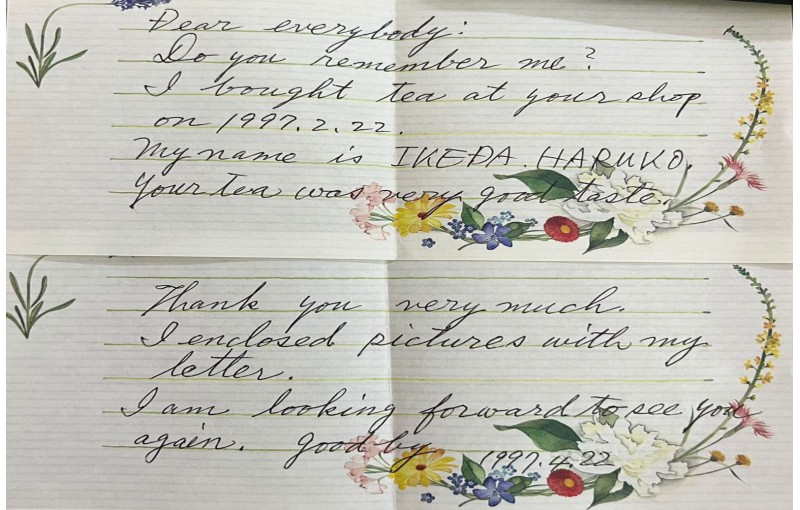 Dear everybody:
Do you remember me?
I bought tea at your shop
on 1997.2.22.
My name is IKEDA.HARUKO.
Your tea was very good taste.
Thank you very much.
I enclosed pictures with my
letter.
I am looking forward to see you
again. good by
1997.4.22